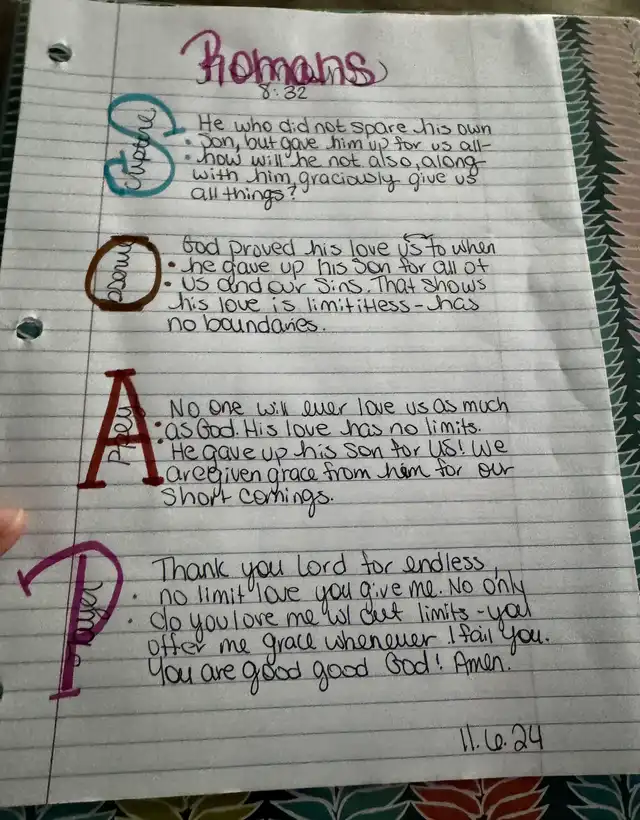 Romans
8:32
Scripture
He who did not spare his own
Son, but gave him up for us all-
how will he not also, along
with him, graciously give us
all things?
Observe
God proved his love us to when
he gave up his Son for all of
us and our sins. That shows
his love is limititless - has
no boundaries.
Apply
No one will ever love us as much
as God. His love has no limits.
He gave up his Son for US! We
are given grace from him for our
short comings.
Prayer
Thank you Lord for endless,
no limit love you give me. No only
do you love me w/ out limits - you
offer me grace whenever I fail you.
You are good good God! Amen.
11.6.24